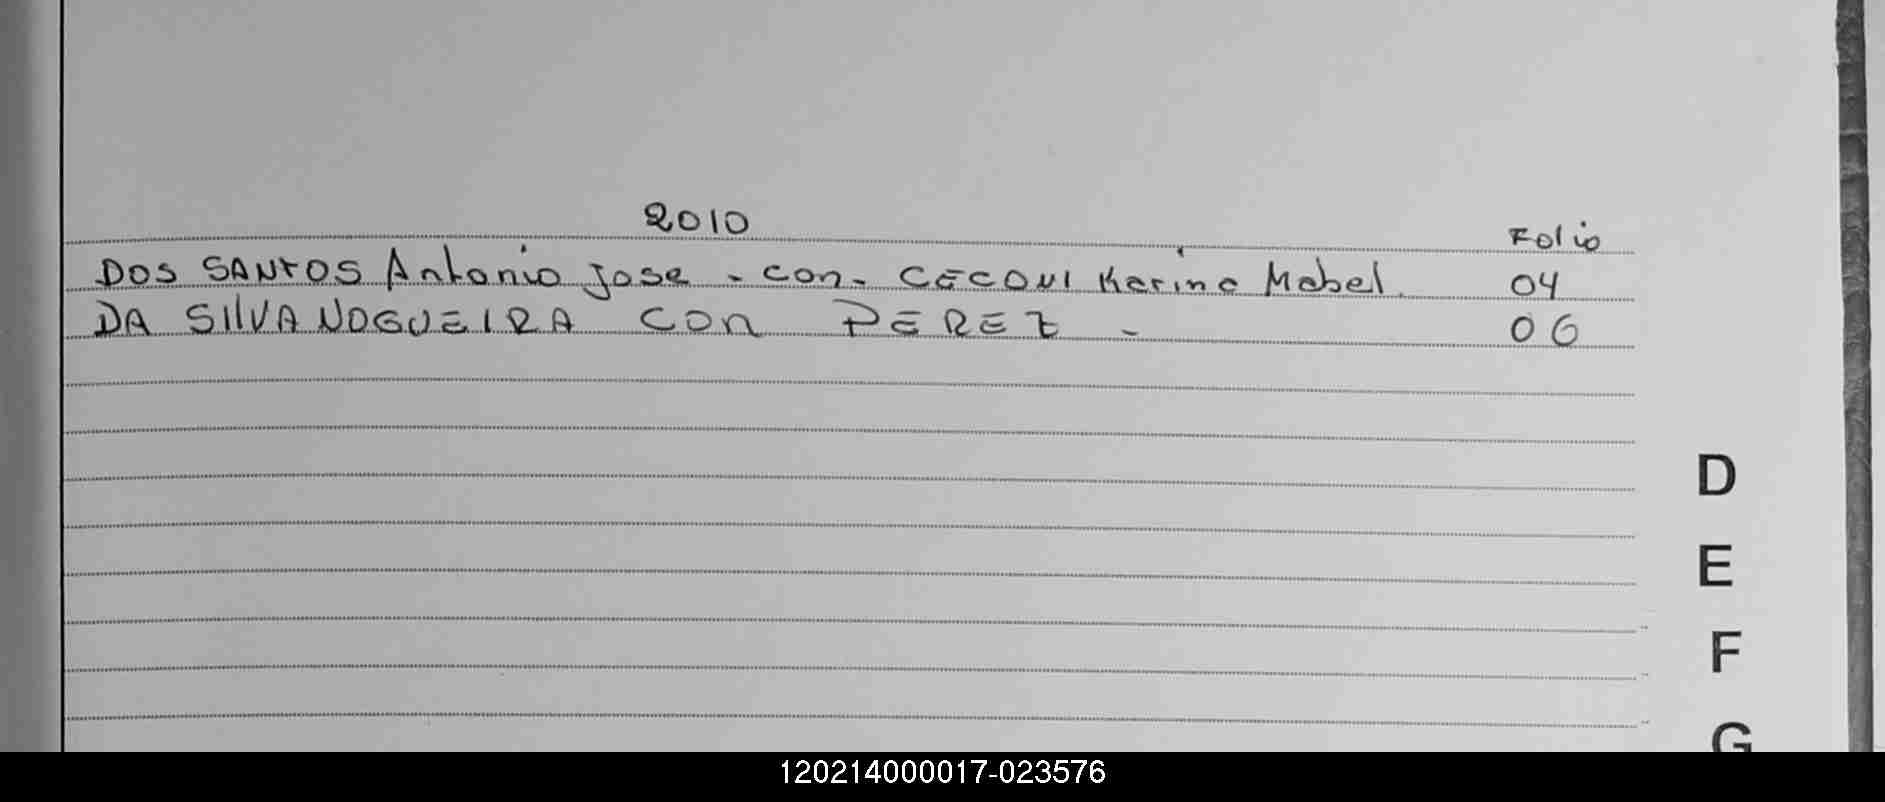 2010
Folio
DOS SANTOS Antonio Jose - con - CECONI Karina Mabel. 04
DA SILVA NOGUEIRA con PEREZ - 06
D
E
F
G
120214000017-023576